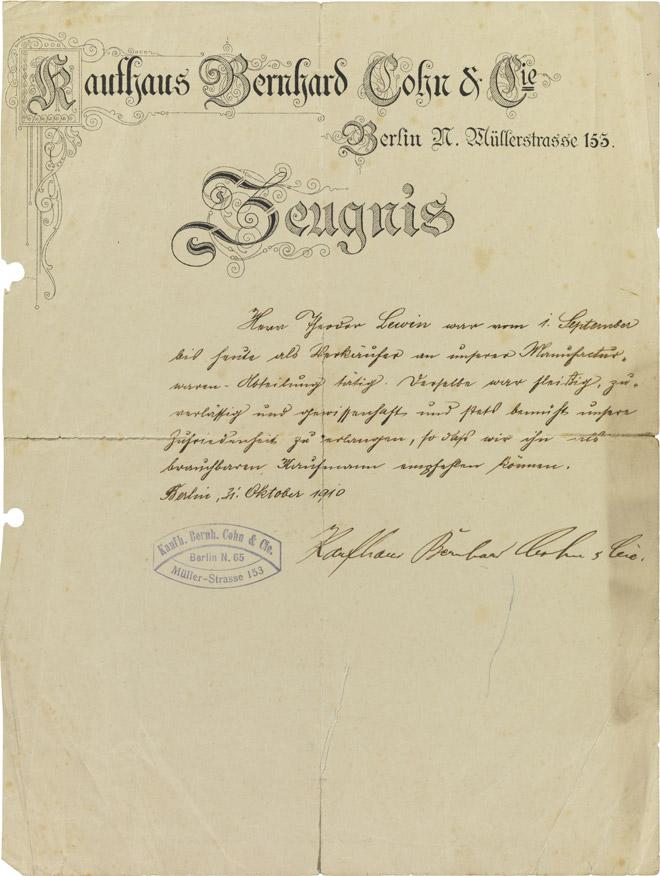 Kaufhaus Bernhard Cohn & Cie
Berlin N. Müllerstrasse 153.
Zeugnis
Herr Theodor Lewin war vom 1. September
bis heute als Verkäufer an unserer Manufactur-
waren-Abteilung tätig. Derselbe war fleißig, zu-
verlässig und gewissenhaft und stets bemüht unsere
Zufriedenheit zu erlangen, so daß wir ihn als
brauchbaren Kaufmann empfehlen können.
Berlin, 31. Oktober 1910
Kaufh. Bernh. Cohn & Cie.
Berlin N. 65
Müller-Strasse 153
Kaufhaus Bernhard Cohn & Cie.